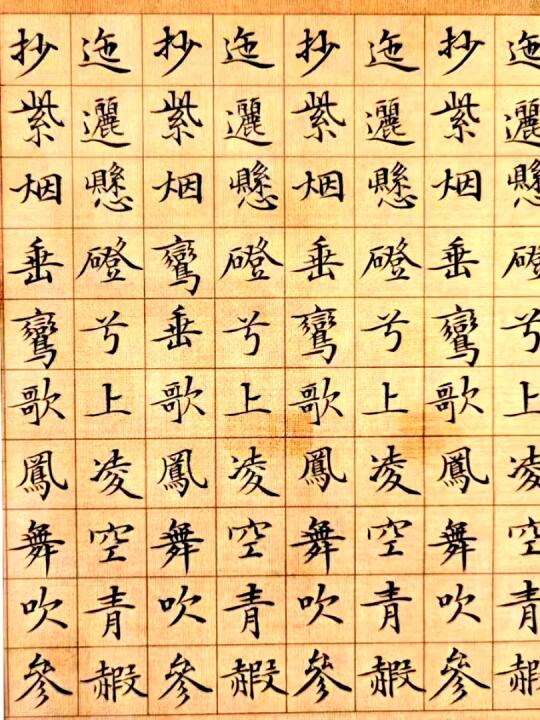 迤邐懸磴兮上凌空青赮
抄紫烟垂鸞歌鳳舞吹參
迤邐懸磴兮上凌空青赮
抄紫烟垂鸞歌鳳舞吹參
迤邐懸磴兮上凌空青赮
抄紫烟鸞垂歌鳳舞吹參
迤邐懸磴兮上凌空青赮
抄紫烟垂鸞歌鳳舞吹參